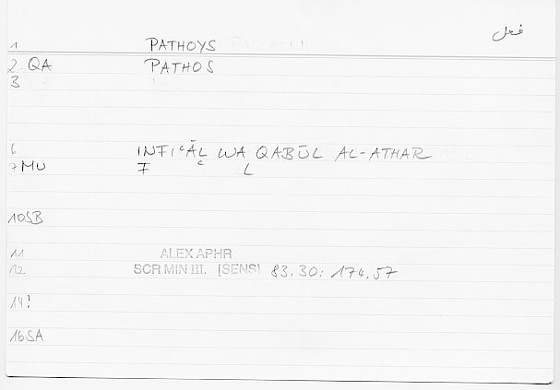 فعل
1 PATHOYS
2 QA PATHOS
3
6 INFIᶜĀL WA QABŪL AL-ATHAR
7 MU F ᶜ L
10 SB
11 ALEX APHR
12 SCR MIN III. [SENS] 83.30; 174,57
14!
16 SA